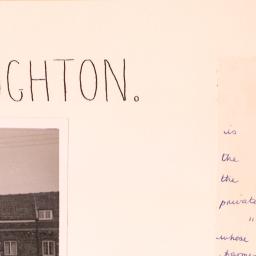 GHTON.
is
the
the
private
"
whose